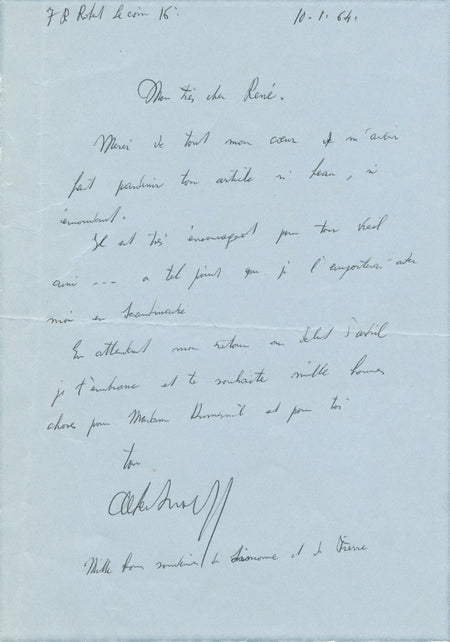 7 R Robert Le coin 16e 10.1.64.
Mon très cher René.
Merci de tout mon cœur de m'avoir
fait parvenir ton article si beau, si
émouvant.
Il est très encourageant pour ton vieil
ami --- a tel point que je l'emporterai avec
moi en Scandinavie
En attendant mon retour au début d'avril
je t'embrasse et te souhaite mille bonnes
choses pour Madame Dumesnil et pour toi
ton
Mille bons souvenirs de Simone et de Pierre